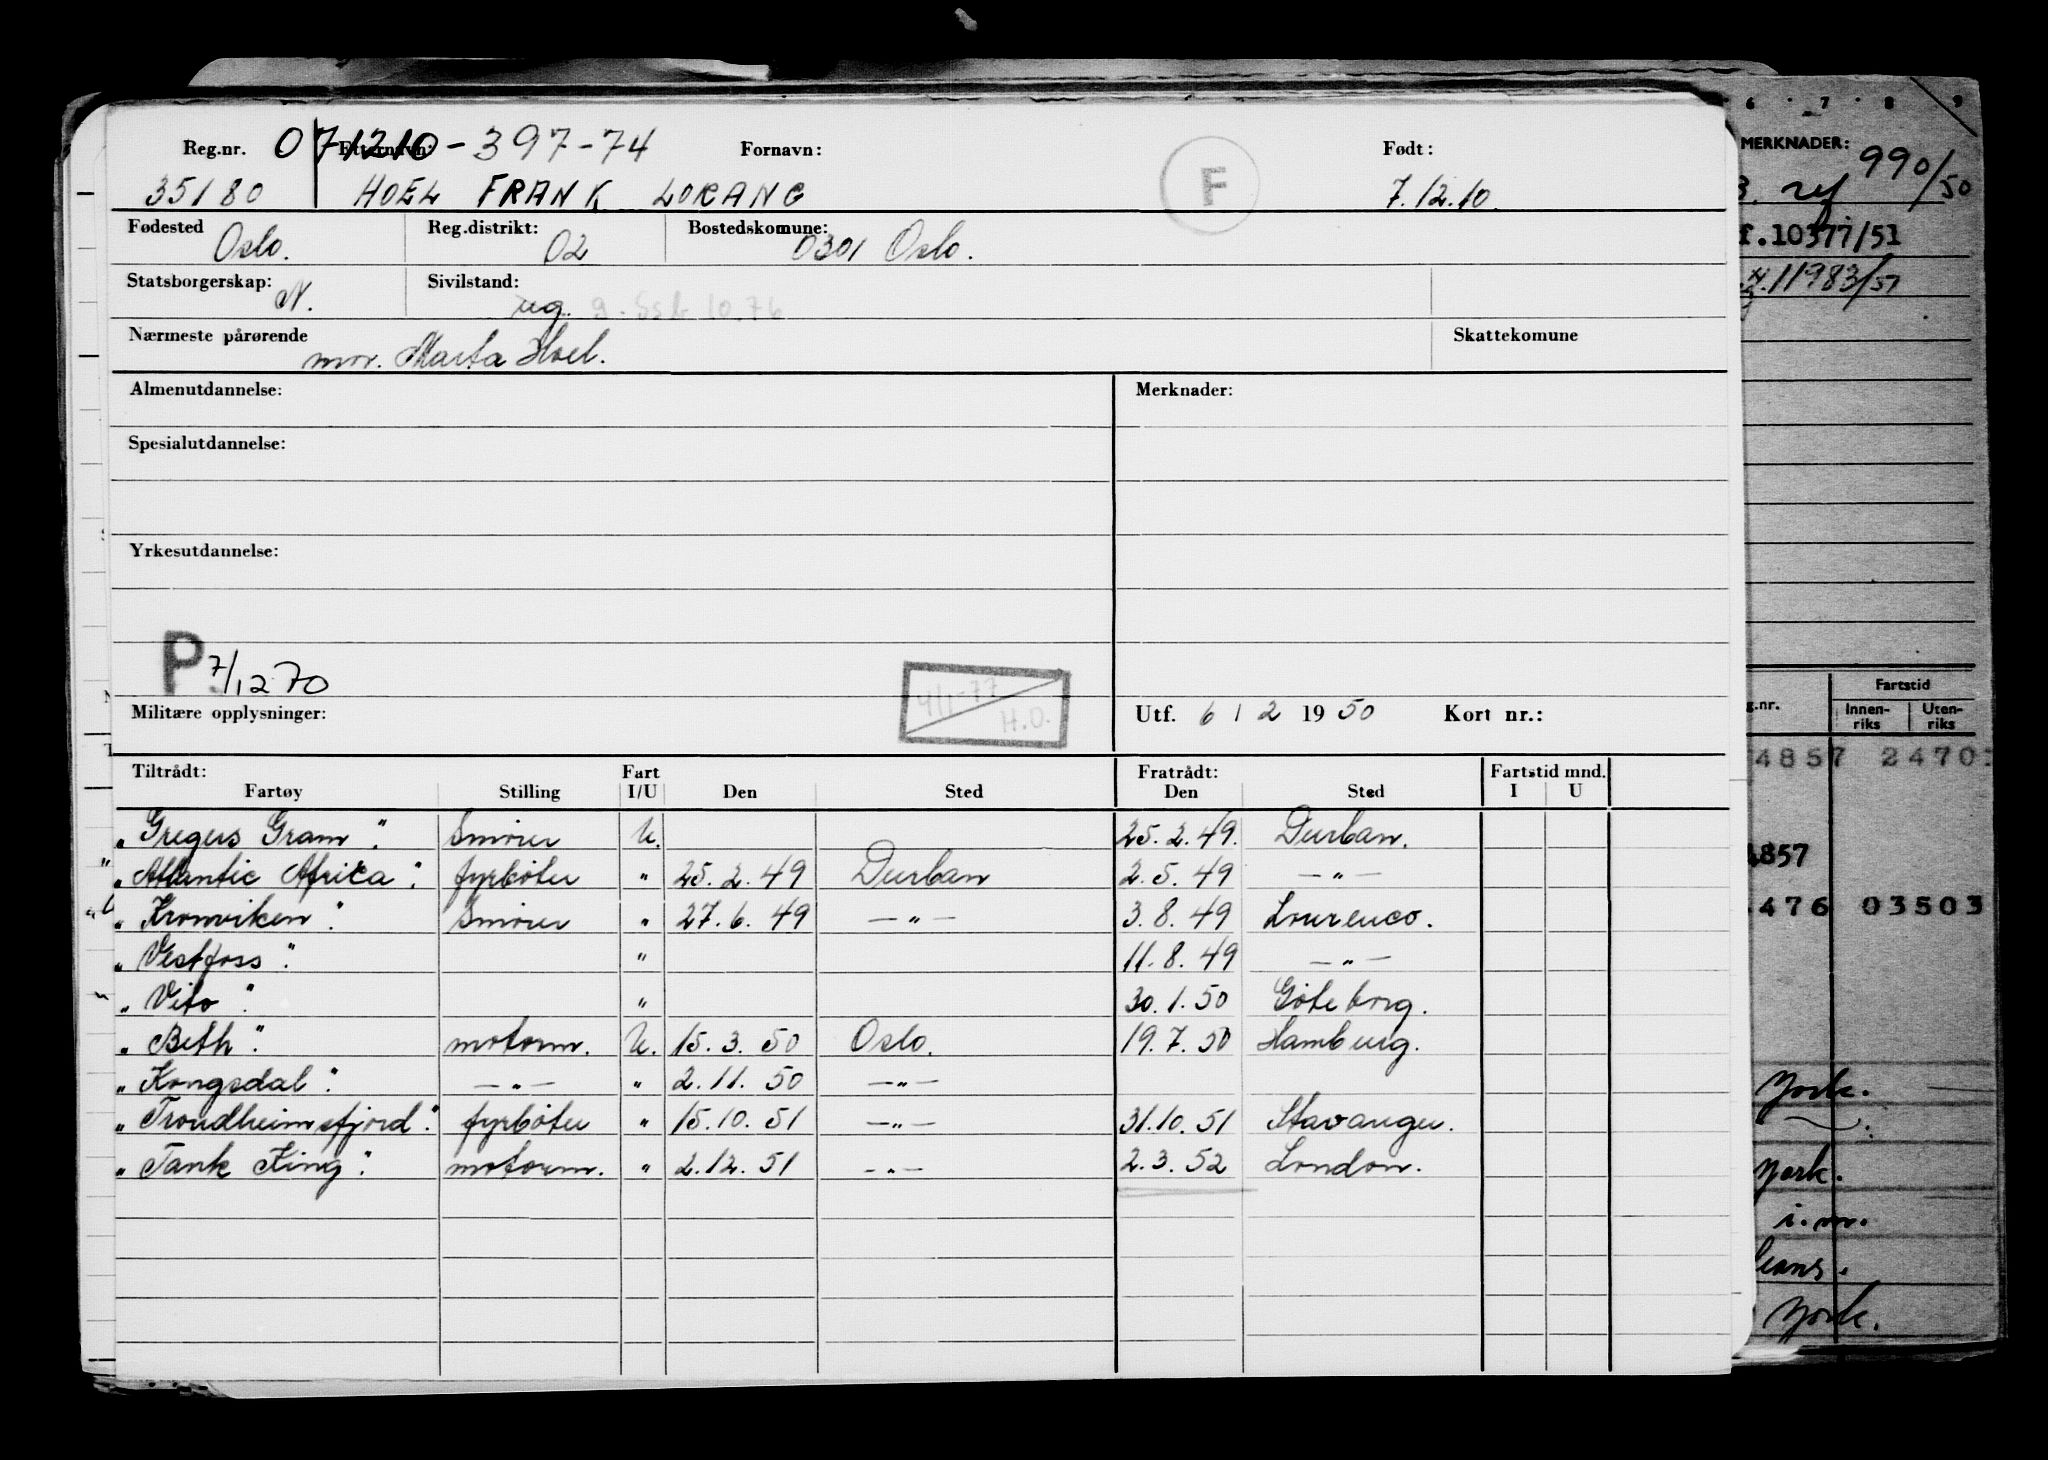 Reg.nr. 071210-397-74 Etternavn: Fornavn: F Født:
35180 HOEL FRANK LORANG 7.12.10.
Fødested Oslo. Reg.distrikt: 02 Bostedskomune: 0301 Oslo.
Statsborgerskap: N. Sivilstand: ug. g. Ssb 10.76
Nærmeste pårørende mor. Marta Hoel. Skattekomune
Almenutdannelse: Merknader:
Spesialutdannelse:
Yrkesutdannelse:
P 7/12 70
4/1-77 H.O.
Militære opplysninger: Utf. 6 / 2 1950 Kort nr.:
Tiltrådt: Fart Fratrådt: Fartstid mnd.
Fartøy Stilling I/U Den Sted Den Sted I U
"Gregers Gram". Smører U. 25.2.49. Durban.
"Atlantic Africa". fyrbøter " 25.2.49 Durban 2.5.49 —"—
"Kronviken". Smører " 27.6.49 —"— 3.8.49 Lourenco.
"Vestfoss". " 11.8.49 —"—
"Vito". " 30.1.50 Göteborg.
"Beth". motorm. U. 15.3.50 Oslo. 19.7.50 Hamburg.
"Kongsdal". —"— " 2.11.50 —"—
"Trondheimsfjord". fyrbøter " 15.10.51 —"— 31.10.51 Stavanger.
"Tank King". motorm. " 2.12.51 —"— 2.3.52 London.
6 7 8 9
MERKNADER: 990/50
ref
f.10377/51
11983/51
Fartstid
g.nr. Innenriks Utenriks
4857 2470
4857
476 03503
York.
York.
i.m.
leans.
York.